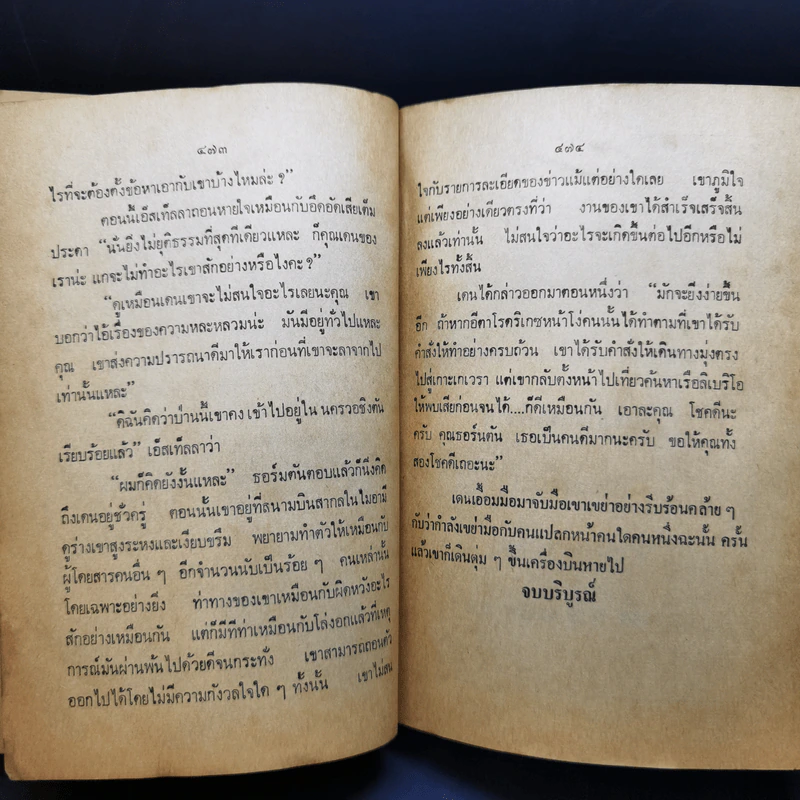 ๔๗๓
ไรที่จะต้องตั้งข้อหาเอากับเขาบ้างไหมล่ะ ?”
ตอนนี้เอ็สเท็ลลาถอนหายใจเหมือนกับอึดอัดเสียเต็ม
ประดา “นั่นยิ่งไม่ยุติธรรมที่สุดทีเดียวแหละ ก็คุณเดนของ
เราน่ะ แกจะไม่ทำอะไรเขาสักอย่างหรือไงคะ ?”
“ดูเหมือนเดนเขาจะไม่สนใจอะไรเลยนะคุณ เขา
บอกว่าไอ้เรื่องของความหละหลวมน่ะ มันมีอยู่ทั่วไปแหละ
คุณ เขาส่งความปรารถนาดีมาให้เราก่อนที่เขาจะลาจากไป
เท่านั้นแหละ”
“ดิฉันคิดว่าป่านนี้เขาคง เข้าไปอยู่ใน นครวอชิงตัน
เรียบร้อยแล้ว” เอ็สเท็ลลาว่า
“ผมก็คิดยังงั้นแหละ” ธอร์นตันตอบแล้วก็นิ่งคิด
ถึงเดนอยู่ชั่วครู่ ตอนนั้นเขาอยู่ที่สนามบินสากลในไมอามี่
ดูร่างเขาสูงระหงและเงียบขรึม พยายามทำตัวให้เหมือนกับ
ผู้โดยสารคนอื่น ๆ อีกจำนวนนับเป็นร้อย ๆ คนเหล่านั้น
โดยเฉพาะอย่างยิ่ง ท่าทางของเขาเหมือนกับผิดหวังอะไร
สักอย่างเหมือนกัน แต่ก็มีทีท่าเหมือนกับโล่งอกแล้วที่เหตุ
การณ์มันผ่านพ้นไปด้วยดีจนกระทั่ง เขาสามารถถอนตัว
ออกไปได้โดยไม่มีความกังวลใจใด ๆ ทั้งนั้น เขาไม่สน
๔๗๔
ใจกับรายการละเอียดของข่าวแม้แต่อย่างใดเลย เขาภูมิใจ
แต่เพียงอย่างเดียวตรงที่ว่า งานของเขาได้สำเร็จเสร็จสิ้น
ลงแล้วเท่านั้น ไม่สนใจว่าอะไรจะเกิดขึ้นต่อไปอีกหรือไม่
เพียงไรทั้งสิ้น
เดนได้กล่าวออกมาตอนหนึ่งว่า “มักจะยิ่งง่ายขึ้น
อีก ถ้าหากอีตาโรดริเกซหน้าโง่คนนั้นได้ทำตามที่เขาได้รับ
คำสั่งให้ทำอย่างครบถ้วน เขาได้รับคำสั่งให้เดินทางมุ่งตรง
ไปสู่เกาะเกเวรา แต่เขากลับตั้งหน้าไปเที่ยวค้นหาเรือลิเบริโอ
ให้พบเสียก่อนจนได้....ก็ดีเหมือนกัน เอาละคุณ โชคดีนะ
ครับ คุณธอร์นตัน เธอเป็นคนดีมากนะครับ ขอให้คุณทั้ง
สองโชคดีเถอะนะ”
เดนเอื้อมมือมาจับมือเขาเขย่าอย่างรีบร้อนคล้าย ๆ
กับว่ากำลังเขย่ามือกับคนแปลกหน้าคนใดคนหนึ่งฉะนั้น ครั้น
แล้วเขาก็เดินดุ่ม ๆ ขึ้นเครื่องบินหายไป
จบบริบูรณ์